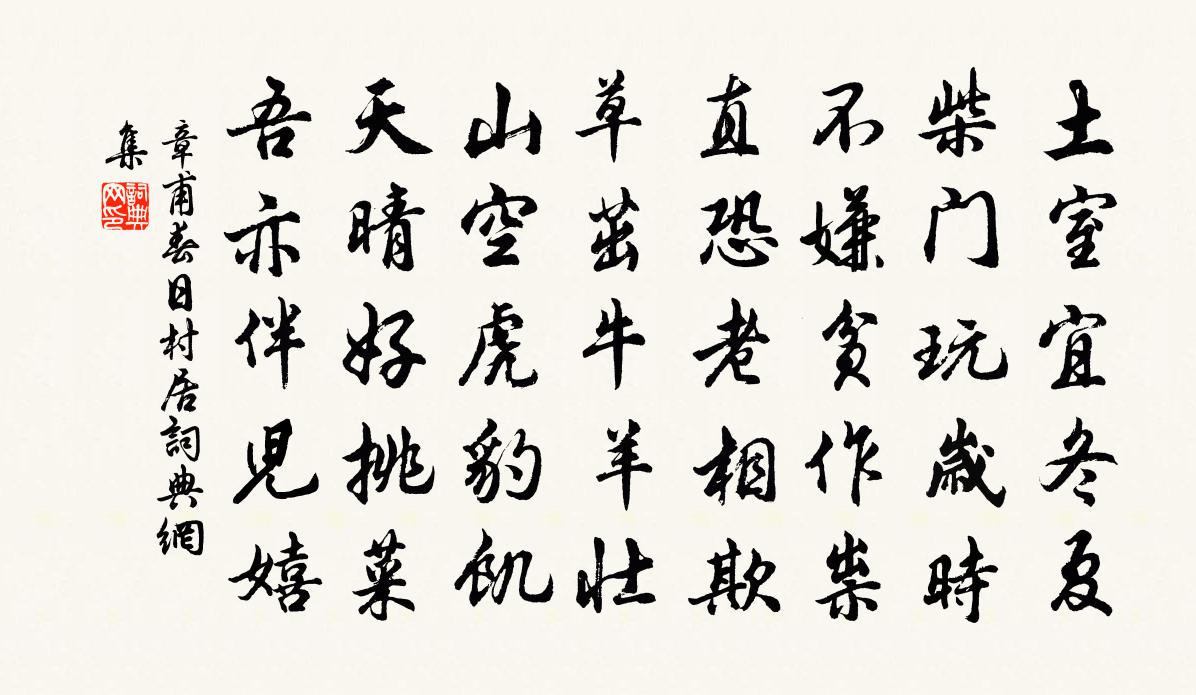 土室宜冬夏
柴门玩歲時
不嫌貧作祟
直恐老相欺
草茁牛羊壮
山空虎豹飢
天晴好挑菜
吾亦伴児嬉
章甫春日村居詞典網
集
詞典
网印